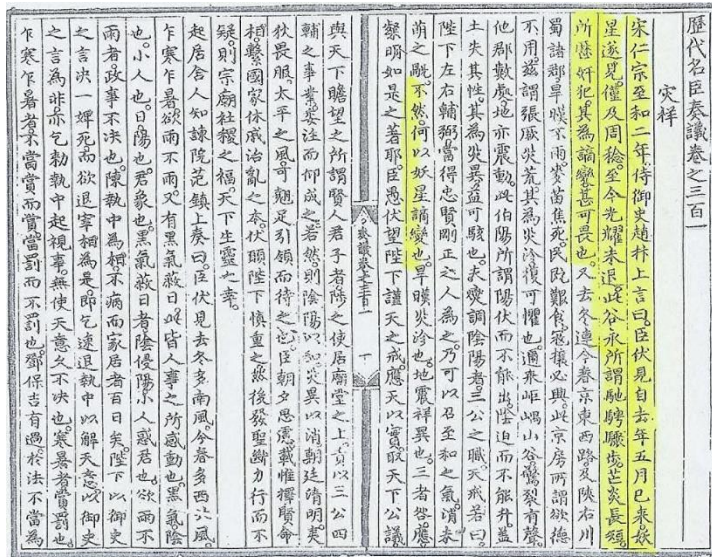 歷代名臣奏議卷之三百一
災祥
宋仁宗至和二年侍御史趙抃上言曰臣伏見自去年五月已來妖
星遂見僅及周稔至今光耀未退此谷永所謂馳騁驟步芒炎長短
所歷奸犯其為謫變甚可畏也又去冬連今春京東西路及陝右川
蜀諸郡旱暵不雨麥苗焦死民既艱食寇攘必興此京房所謂欲德
不用茲謂張厥災荒其為災沴復可懼也邇來岠嵎山谷驚裂有聲
他郡數處地亦震動此伯陽所謂陽伏而不能出陰迫而不能升蓋
土失其性其為災異益可駭也夫燮調陰陽者三公之職天戒若曰
陛下左右輔弼當得忠賢剛正之人為之乃可以召至和之氣消未
萌之眚不然何以妖星謫變也旱暵災沴也地震祥異也三者咎應
粲明如是之著耶臣愚伏望陛下謹天之戒應天以實取天下公議
奏議卷之三百一
與天下瞻望之所謂賢人君子者陟之使居廟堂之上責以三公四
輔之事業委注而仰成之若然則陰陽以和災異以消朝廷清明夷
狄畏服太平之風可翹足引領而待之也臣朝夕思慮載惟擇賢命
相繫國家休戚治亂之本伏願陛下慎重之然後發聖斷力行而不
疑則宗廟社稷之福天下生靈之幸
起居舍人知諫院范鎮上奏曰臣伏見去冬多南風今春多西北風
乍寒乍暑欲雨不雨又有黑氣蔽日此皆人事之所感動也黑氣陰
也小人也日陽也君象也黑氣蔽日者陰侵陽小人惑君也欲雨不
雨者政事不決也陳執中為相不病而家居者百日矣陛下以御史
之言決一婢死而欲退宰相為是即乞速退執中以解天意以御史
之言為非亦乞勅執中起視事無使天意久不決也寒暑者賞罰也
乍寒乍暑者不當賞而賞當罰而不罰也鄧保吉有過於法不當為